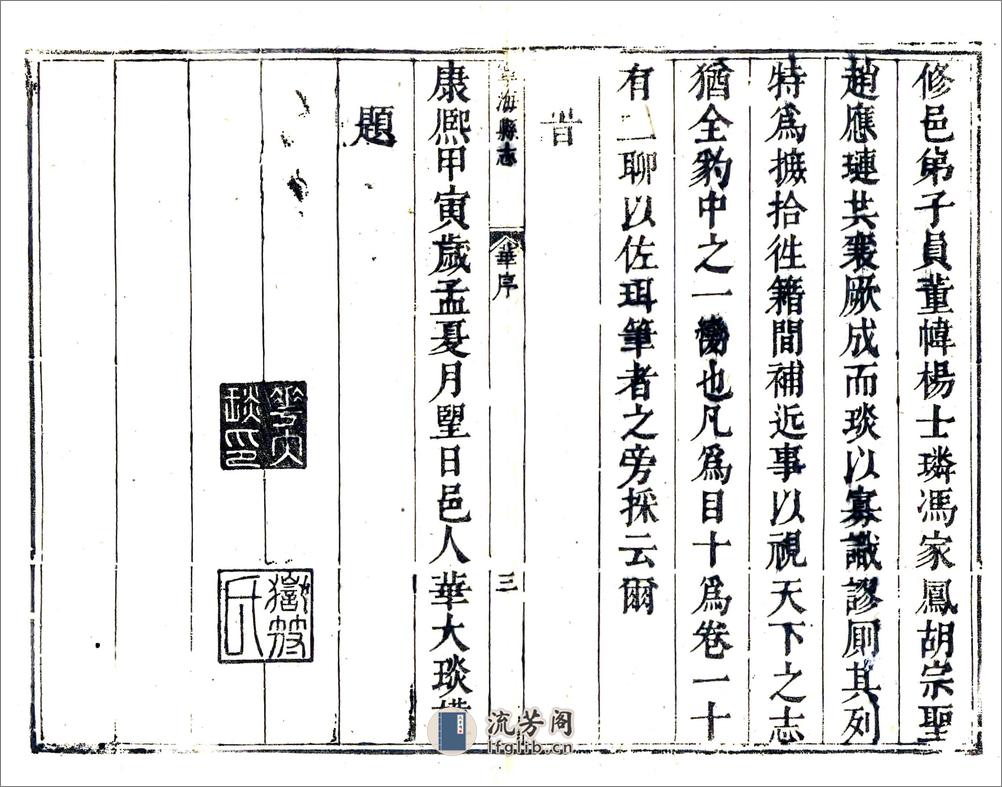 修邑弟子員董幃楊士璘馮家鳳胡宗聖
趙應璉共襄厥成而琰以寡識謬厠其列
特爲摭拾徃籍間補近事以視天下之志
猶全豹中之一斑也凡爲目十爲卷一十
有二聊以佐珥筆者之旁採云爾
旹
海縣志
華序
三
康熙甲寅歲孟夏月朢日邑人華大琰
題
華大
琰印
氏
流芳阁
lfglib.cn